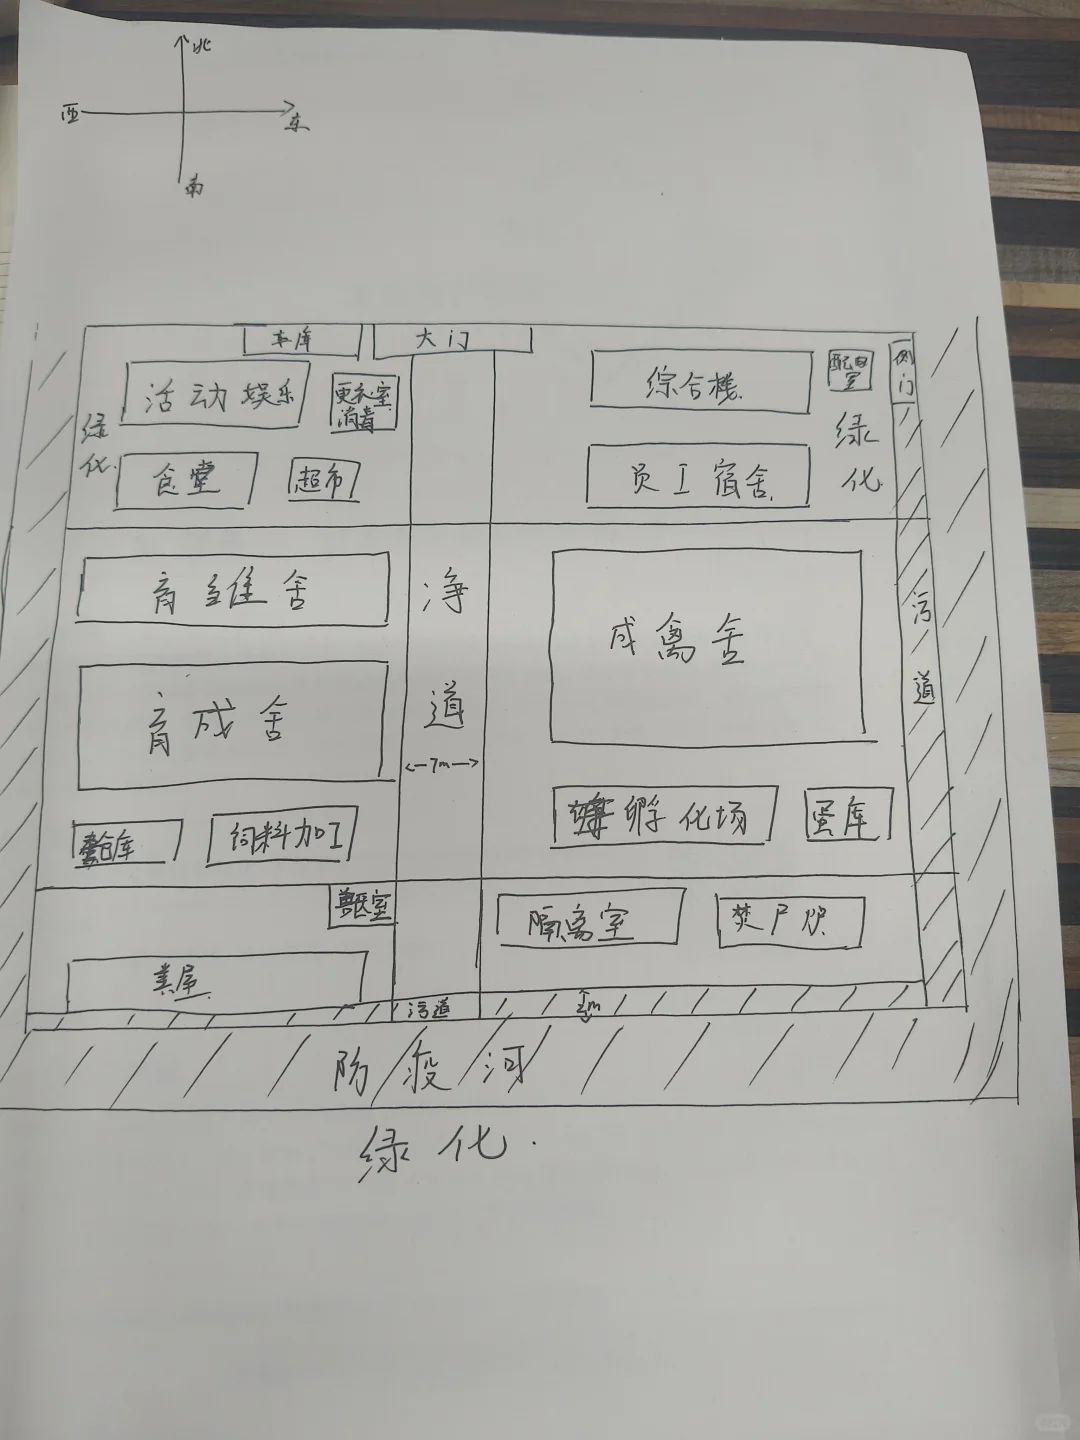 北
西
东
南
车库
大门
活动娱乐
更衣室
消毒
综合栈
配电室
侧门
绿化
食堂
超市
员工宿舍
绿化
育雏舍
净道
成禽舍
污道
育成舍
7m
仓库
饲料加工
孵化场
蛋库
兽医室
隔离室
焚尸炉
粪屋
污道
2m
防疫河
绿化.